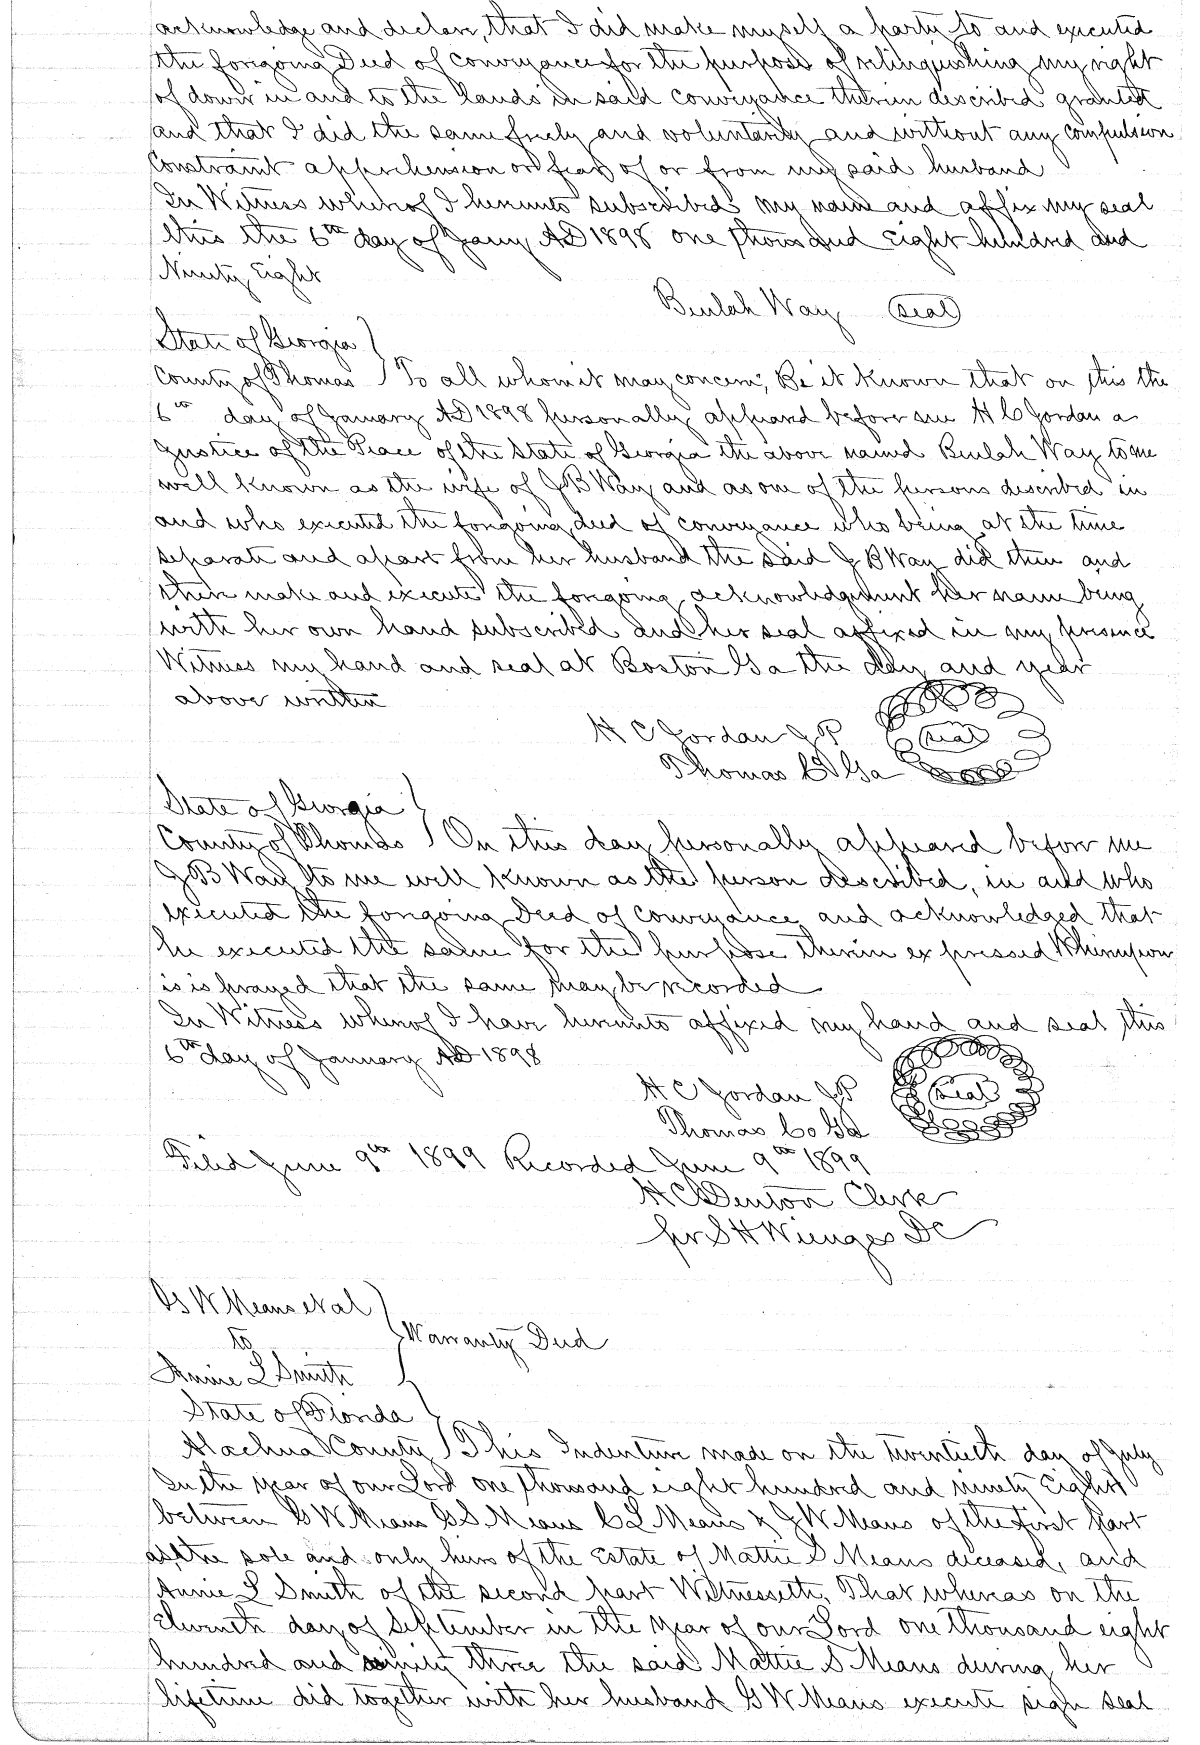 acknowledge and declare, that I did make myself a party to and executed
the forgoing Deed of conveyance for the purpose of relinquishing my right
of dower in and to the lands in said conveyance therein described granted
and that I did the same freely and voluntarily and without any compulsion
Constraint apprehension or fear of or from my said husband
In Witness whereof I hereunto subscribed my name and affix my seal
this the 6th day of Jany AD 1898 one thousand eight hundred and
Ninety Eight
Beulah Way (seal)
State of Georgia }
County of Thomas } To all whom it may concern; Be it Known that on this the
6th day of January AD 1898 personally appeared before me H C Jordan a
Justice of the Peace of the State of Georgia the above named Beulah Way to me
well known as the wife of J B Way and as one of the persons described in
and who executed the forgoing deed of conveyance who being at the time
separate and apart from her husband the said J B Way did then and
there make and execute the forgoing acknowledgement her name being
with her own hand subscribed and her seal affixed in my presence
Witness my hand and seal at Boston Ga the day and year
above written
H C Jordan J P (seal)
Thomas Co Ga
State of Georgia }
County of Thomas } On this day personally appeared before me
J B Way to me well known as the person described, in and who
executed the forgoing Deed of conveyance and acknowledged that
he executed the same for the purpose therein expressed Whereupon
is is prayed that the same may be recorded
In Witness whereof I have hereunto affixed my hand and seal this
6th day of January AD 1898
H C Jordan J P (seal)
Thomas Co Ga
Filed June 9th 1899 Recorded June 9th 1899
H C Denton Clerk
per S H Wienges DC
G W Means et al }
to } Warranty Deed
Annie L Smith }
State of Florida }
Alachua County } This Indenture made on the twentieth day of July
In the year of our Lord one thousand eight hundred and ninety Eight
between G W Means G S Means C L Means & J W Means of the First part
as the sole and only heirs of the Estate of Mattie S Means deceased, and
Annie L Smith of the second part Witnesseth, That whereas on the
Eleventh day of September in the year of our Lord one thousand eight
hundred and ninety three the said Mattie S Means during her
lifetime did together with her husband G W Means execute sign seal